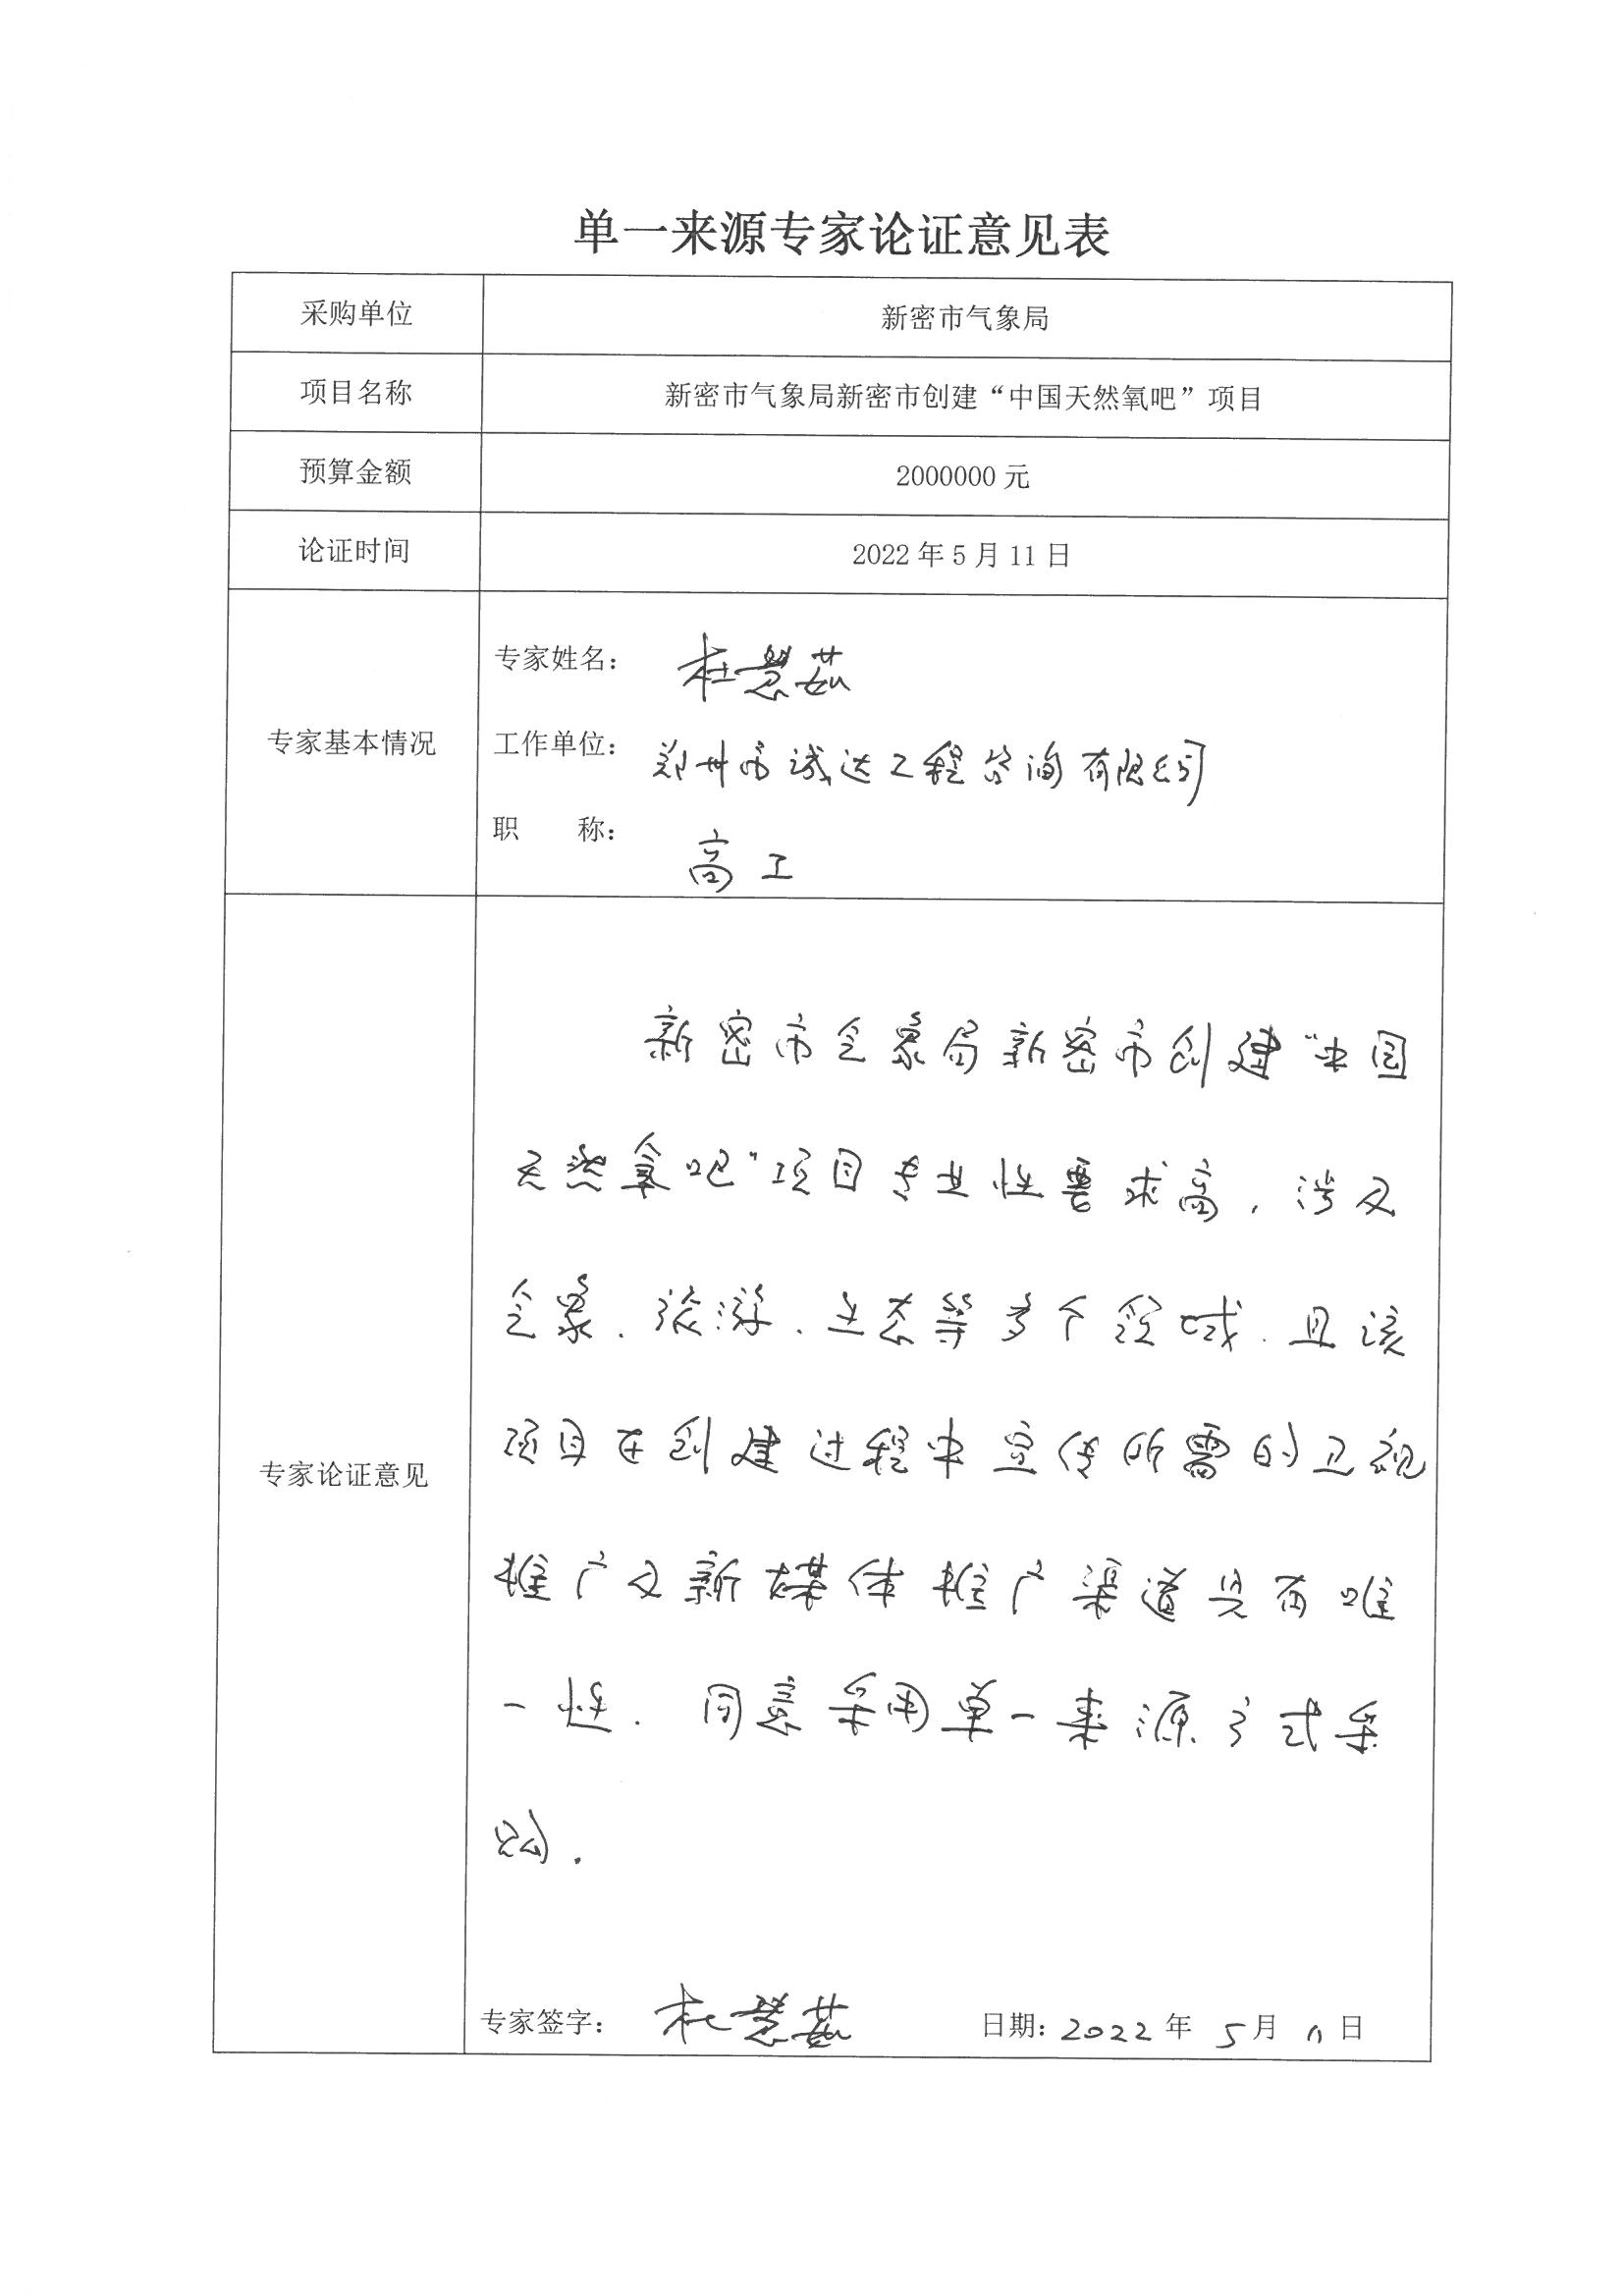 单一来源专家论证意见表
采购单位 新密市气象局
项目名称 新密市气象局新密市创建“中国天然氧吧”项目
预算金额 2000000 元
论证时间 2022 年 5 月 11 日
专家姓名： 杜慧茹
专家基本情况 工作单位： 郑州市诚达工程咨询有限公司
职 称： 高工
新密市气象局新密市创建“中国
天然氧吧”项目专业性要求高，涉及
气象、旅游、生态等多个领域．且该
项目在创建过程中宣传所需的卫视
专家论证意见
推广及新媒体推广渠道具有唯
一性．同意采用单一来源方式采
购．
专家签字： 杜慧茹 日期：2022 年 5 月 11 日